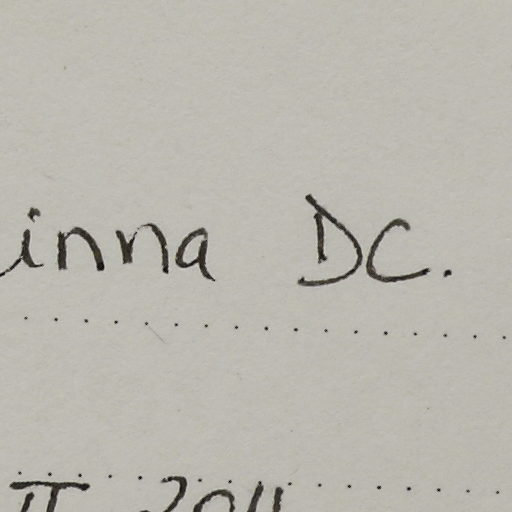 inna DC.
II 2011